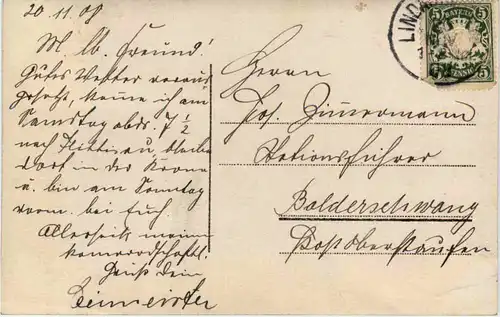 20.11.08
M. lb. Freund!
Gutes Wetter voraus
gesetzt, komme ich am
Samstag abds. 7 1/2
nach u. bleibe
dort in der Krone
u. bin am Sonntag
vorm. bei Euch
Allerseits meine
Gruß Dein
LIND
BAYERN
5 5
5 5
Herrn
Jos. Zimmermann
Stationsführer
Balderschwang
Post Oberstaufen